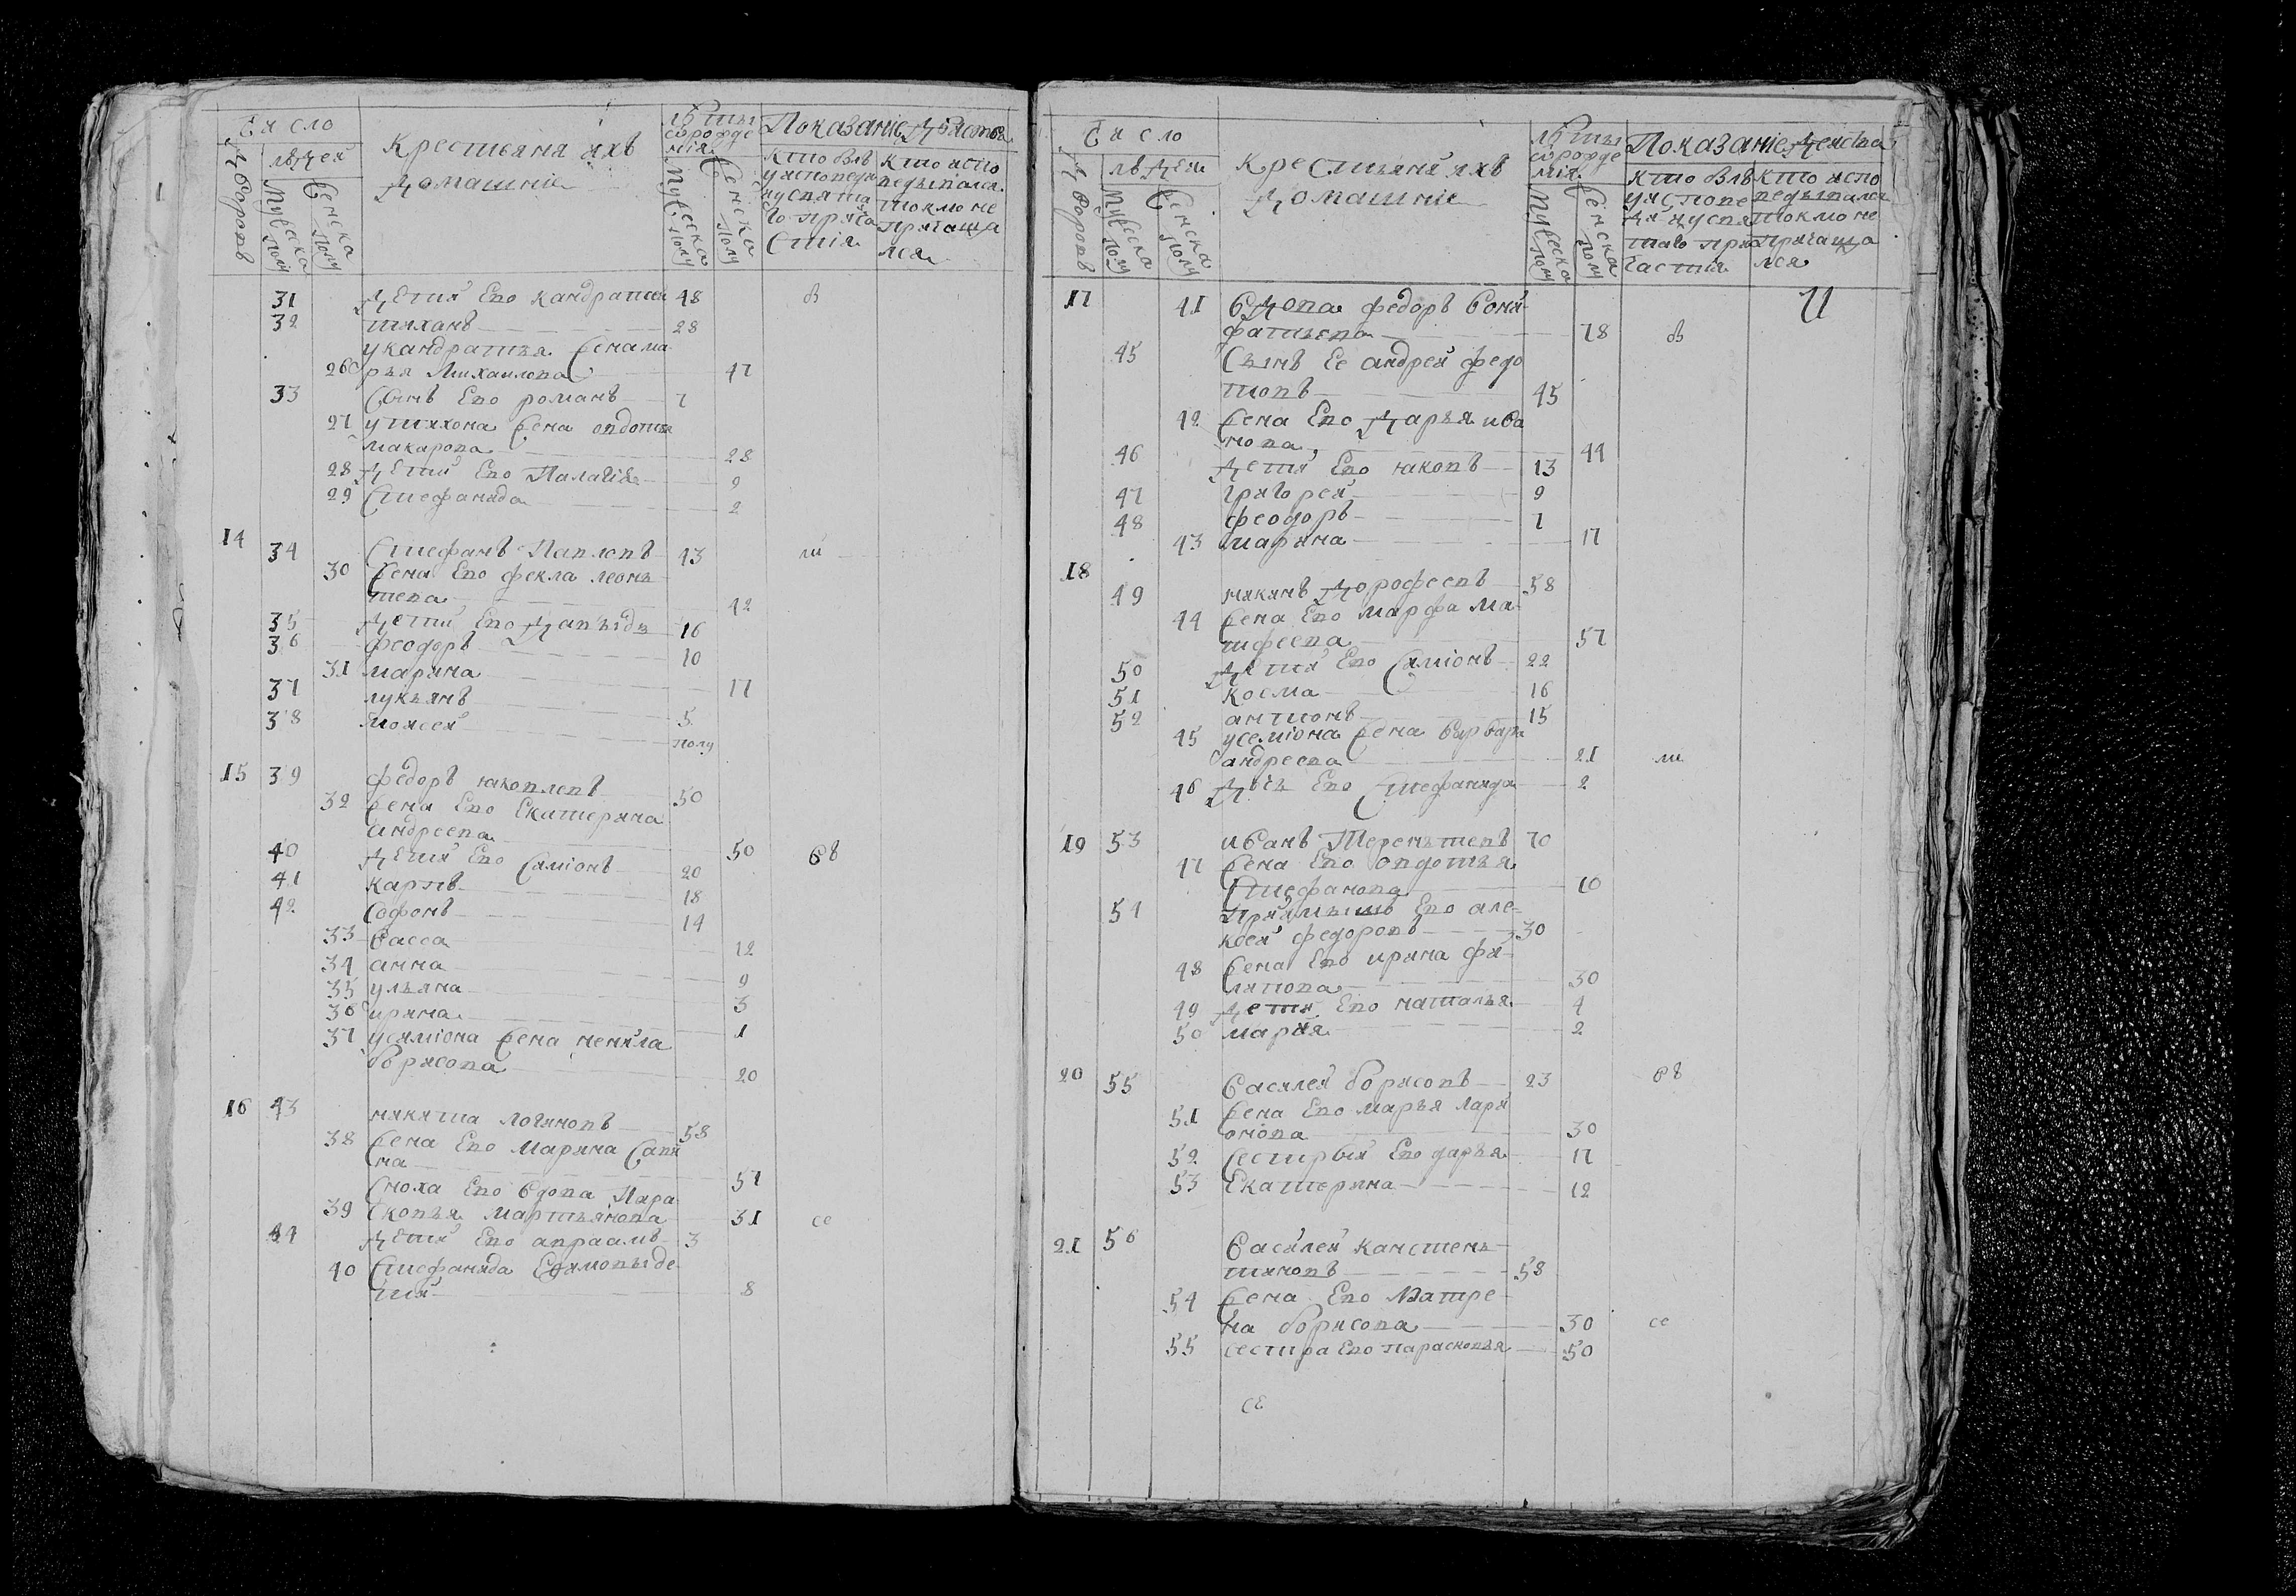 Число
Людей
Дворовъ
Мужеска полу
Женска полу
Крестьяня ихъ
Домашние
Лѣты
от рожде
ния
Мужеска полу
Женска полу
Показание Действа
31 Дети Ево Кандратей 48
32 Тиханъ 28
у Кандратья Жена Ма
26 рья Михаилова 47
33 Сынъ Ево Романъ 7
27 у Тихона Жена Овдотья
Макарова 28
28 Дети Ево Палагия 9
29 Стефанида 2
14
34 Стефанъ Павловъ 43
30 Жена Ево Фекла Леонъ
тева 42
35 Дети Ево Давыдъ 16
36 Феодоръ 10
31 Марина 17
37 Лукьянъ 5
38 Моисей полу
15 39 Федоръ Яковлевъ 50
32 Жена Ево Екатерина
Андреева 50
40 Дети Ево Симионъ 20
41 Карпъ 18
42 Софонъ 14
33 Васса 12
34 Анна 9
35 Ульяна 3
36 Ирина 1
37 у Симиона Жена Ненила
Борисова 20
16 43 Никита Логиновъ 58
38 Жена Ево Марина Сави
на 57
Сноха Ево Вдова Пара
39 сковья Мартьянова 31
44 Дети Ево Авраамъ 3
40 Стефанида Ефимовы де
ти 8
Число
Людей
Дворовъ
Мужеска полу
Женска полу
Крестьяня ихъ
Домашние
Лѣты
от рожде
ния
Мужеска полу
Женска полу
Показание Действа
17 41 Вдова Федоръ Вони
фатьева 78
45 Сынъ Ее Андрей Федо
товъ 45
42 Жена Ево Дарья Ива
нова 44
46 Дети Ево Яковъ 13
47 Григорей 9
48 Феодоръ 7
43 Марина 17
18
49 Никинъ Дорофеевъ 58
44 Жена Ево Марфа Ма
тфеева 57
50 Дети Ево Симионъ 22
51 Косма 16
52 Антонъ 15
45 у Семиона Жена Варвара
Андреева 21
46 Дочь Ево Стефанида 2
19 53 Иванъ Терентьевъ 70
47 Жена Ево Овдотья
Стефанова 70
54 Приимышъ Ево Але
ксей Федоровъ 30
48 Жена Ево Ирина Фи
липова 30
49 Дети Ево Наталья 4
50 Мария 2
20 55 Василей Борисовъ 23
51 Жена Ево Марья Лари
онова 30
52 Сестры Ево Дарья 17
53 Екатерина 12
21 56 Василей Констень
тиновъ 58
54 Жена Ево Матре
на Борисова 30
55 Сестра Ево Парасковья 50